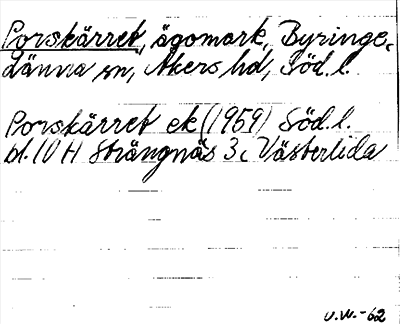 Porskärret, ägomark, Byringe,
Länna sn, Åkers hd, Söd. l.
Porskärret ek (1959) Söd. l.
bl. 10 H Strängnäs 3 c Västerlida
U.W.-62